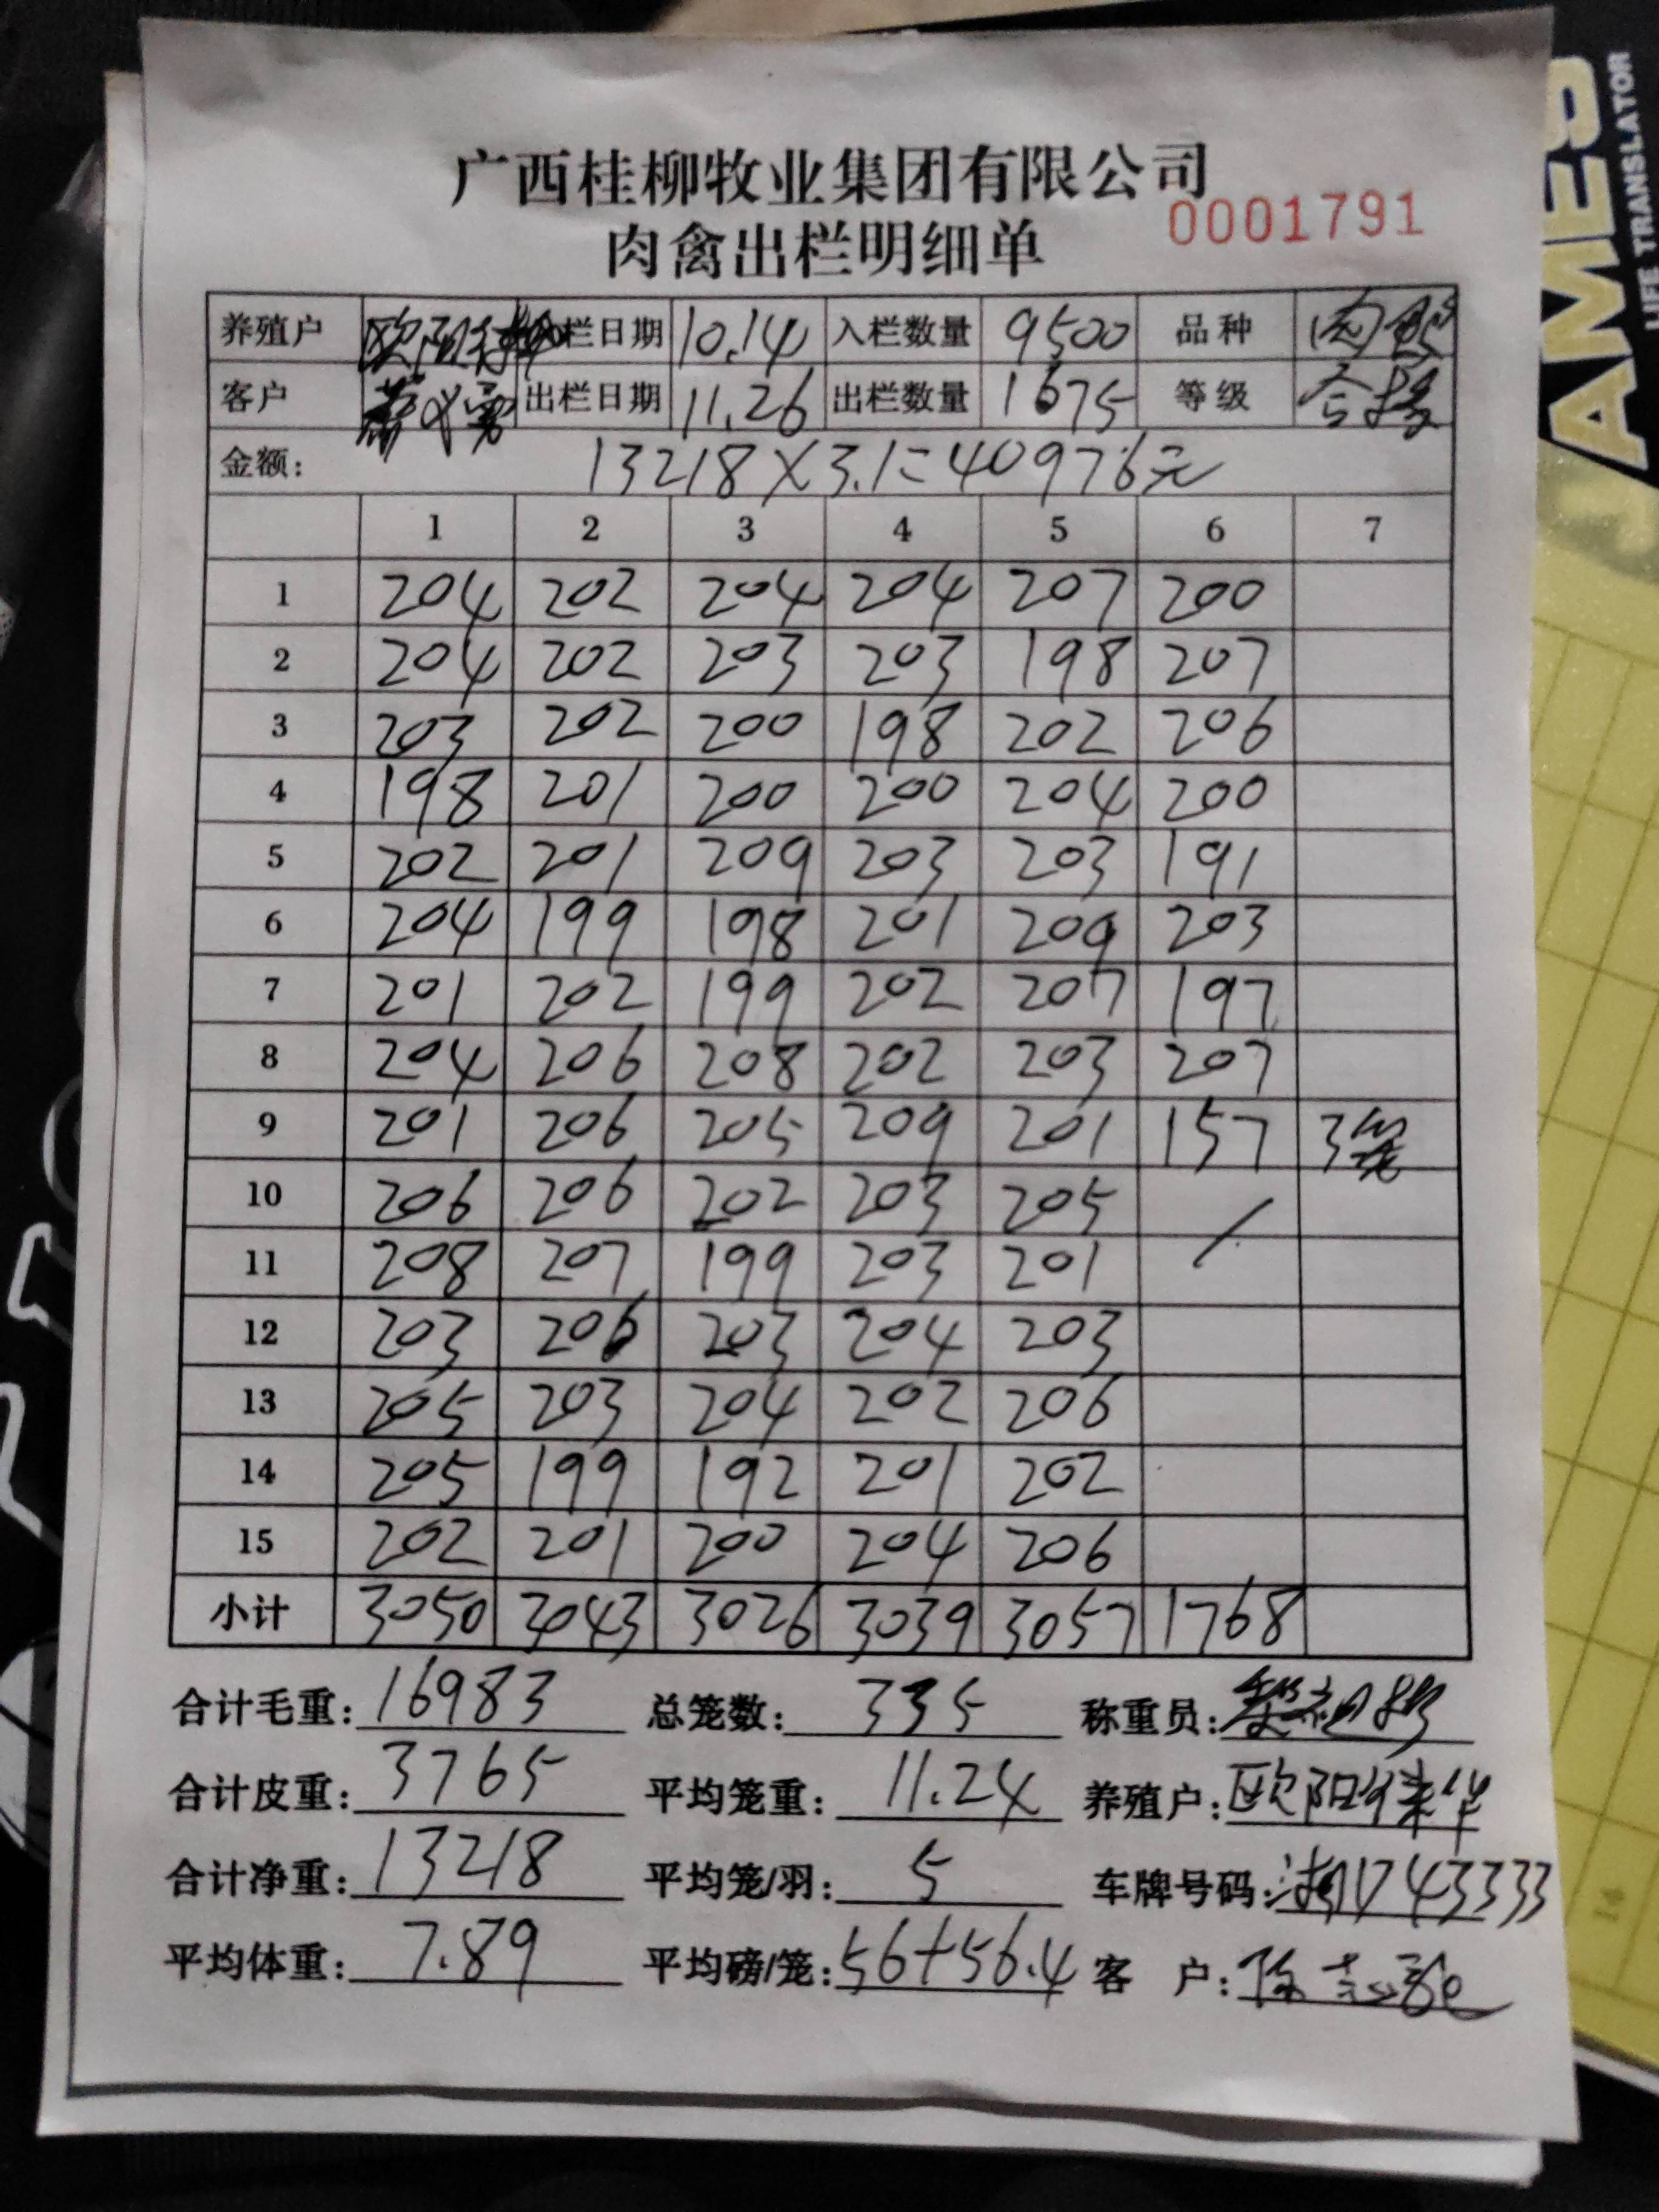 广西桂柳牧业集团有限公司
肉禽出栏明细单 0001791
养殖户 欧阳 栏日期 10.14 入栏数量 9500 品种 肉鸭
客户 出栏日期 11.26 出栏数量 1675 等级 合格
金额: 13218×3.1=40976元
1 2 3 4 5 6 7
1 204 202 204 204 207 200
2 204 202 203 203 198 207
3 203 202 200 198 202 206
4 198 201 200 200 204 200
5 202 201 209 203 203 191
6 204 199 198 201 209 203
7 201 202 199 202 207 197
8 204 206 208 202 203 207
9 201 206 205 209 201 157 3笼
10 206 206 202 203 205 /
11 208 207 199 203 201
12 203 206 203 204 203
13 205 203 204 202 206
14 205 199 192 201 202
15 202 201 200 204 206
小计 3050 3043 3026 3039 3057 1768
合计毛重: 16983 总笼数: 335 称重员:
合计皮重: 3765 平均笼重: 11.24 养殖户: 欧阳
合计净重: 13218 平均笼/羽: 5 车牌号码:
平均体重: 7.89 平均磅/笼: 56+56.4 客 户:
AMES
LIFE TRANSLATOR
14